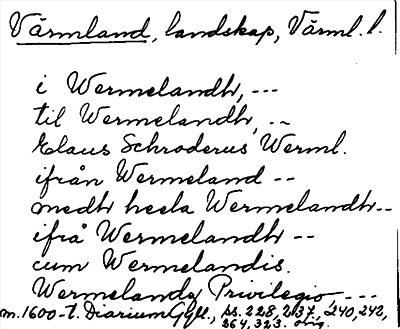 Värmland, landskap, Värml. l.
i Wermelandh, ---
til Wermelandh, --
Claus Schroderus Werml.
ifrån Wermeland --
medh heela Wermelandh--
ifrå Wermelandh --
cum Wermelandis.
Wermelandz Privilegio, ---
m.1600-t. Diarium Gyll., ss. 228, 237, 240, 242,
264, 323. orig.